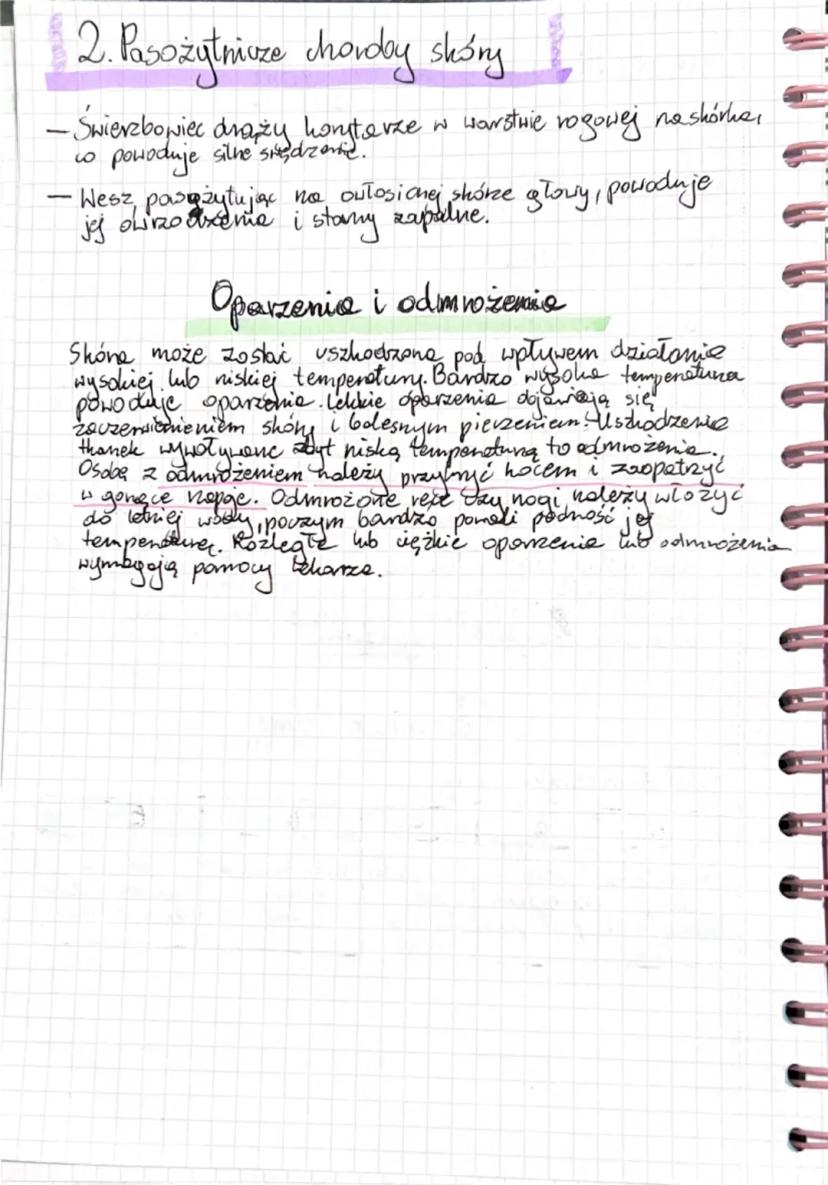 2. Pasożytnicze choroby skóry
– Świerzbowiec drąży korytarze w warstwie rogowej naskórka,
co powoduje silne swędzenie.
– Wesz pasożytując na owłosionej skórze głowy, powoduje
jej owrzodzenia i stany zapalne.
Oparzenia i odmrożenia
Skóra może zostać uszkodzona pod wpływem działania
wysokiej lub niskiej temperatury. Bardzo wysoka temperatura
powoduje oparzenia. Lekkie oparzenia objawiają się
zaczerwienieniem skóry i bolesnym pieczeniem. Uszkodzenie
tkanek wywoływane zbyt niską temperaturą to odmrożenia.
Osobę z odmrożeniem należy przykryć kocem i zaopatrzyć
w gorące napoje. Odmrożone ręce czy nogi należy włożyć
do letniej wody, poczym bardzo pomali podność jej
temperaturę. Rozległe lub ciężkie oparzenia lub odmrożenia
wymagają pomocy lekarza.